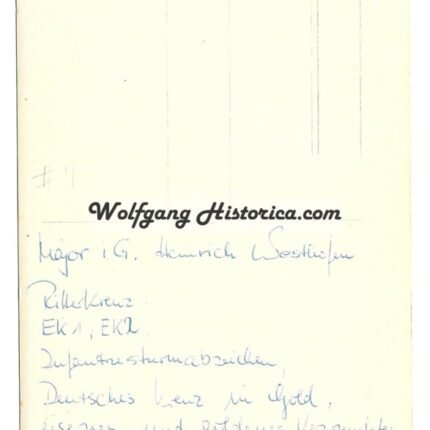 #
Wolfgang Historica.com
Major i G. Heinrich Westhofen
Ritterkreuz
EK1, EK2,
Infantriesturmabzeichen,
Deutsches Kreuz in Gold,
und goldenes